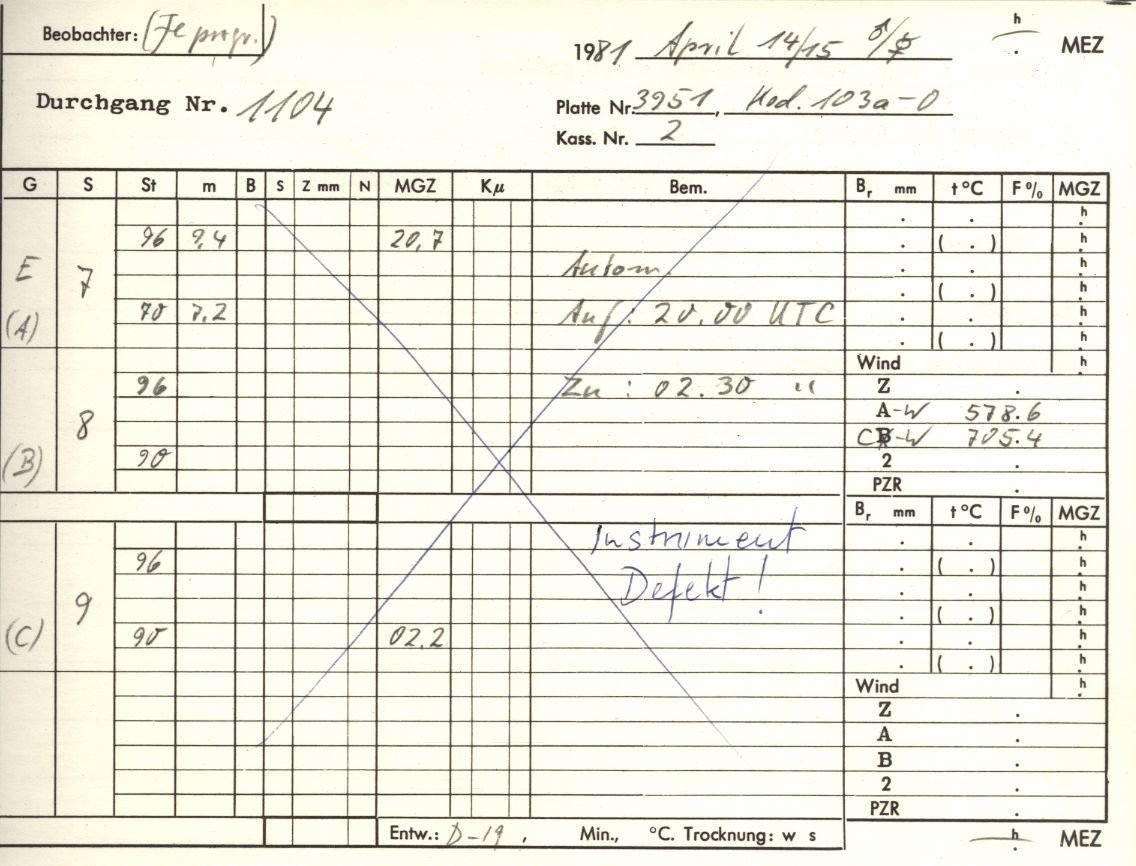 Beobachter: (Je progr.)
1981 April 14/15 ♂/☿
h
. MEZ
Durchgang Nr. 1104
Platte Nr. 3951, Kod. 103a-O
Kass. Nr. 2
G S St m B S Z mm N MGZ Kμ Bem. Br mm t °C F % MGZ
. . h
96 9,4 20,7 . ( . ) h
E 7 Autom. . . h
. ( . ) h
(A) 70 7,2 Auf: 20.00 UTC . . h
. ( . ) h
Wind h
96 Zu : 02.30 " Z .
8 A-W 578.6
C-W 705.4
(B) 90 2 .
PZR .
Br mm t °C F % MGZ
Instrument . . h
96 . ( . ) h
Defekt! . . h
9 . ( . ) h
(C) 90 02.2 . . h
. ( . ) h
Wind h
Z .
A .
B .
2 .
PZR .
Entw.: D-19, Min., °C. Trocknung: w s h
. MEZ